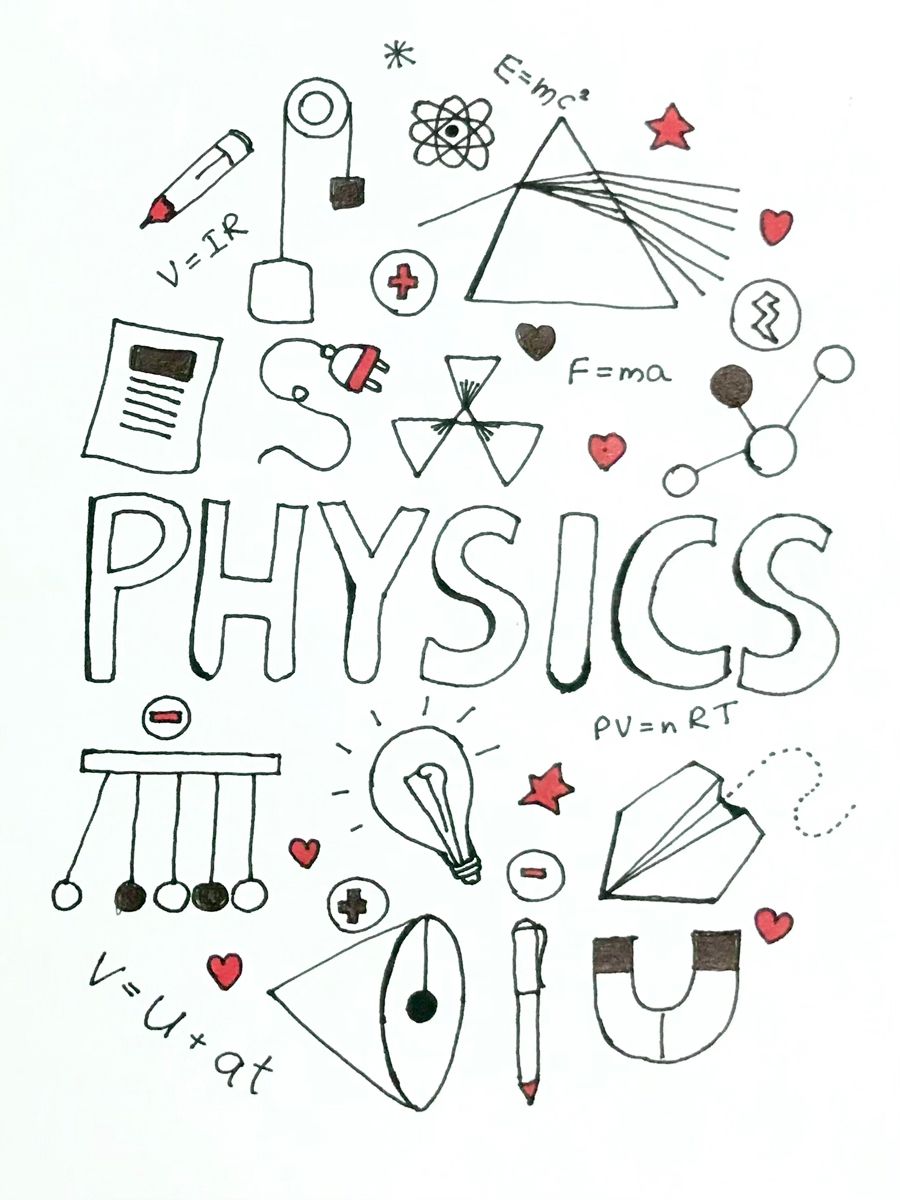 E=mc²
V=IR
F=ma
PHYSICS
PV=nRT
V=U+at